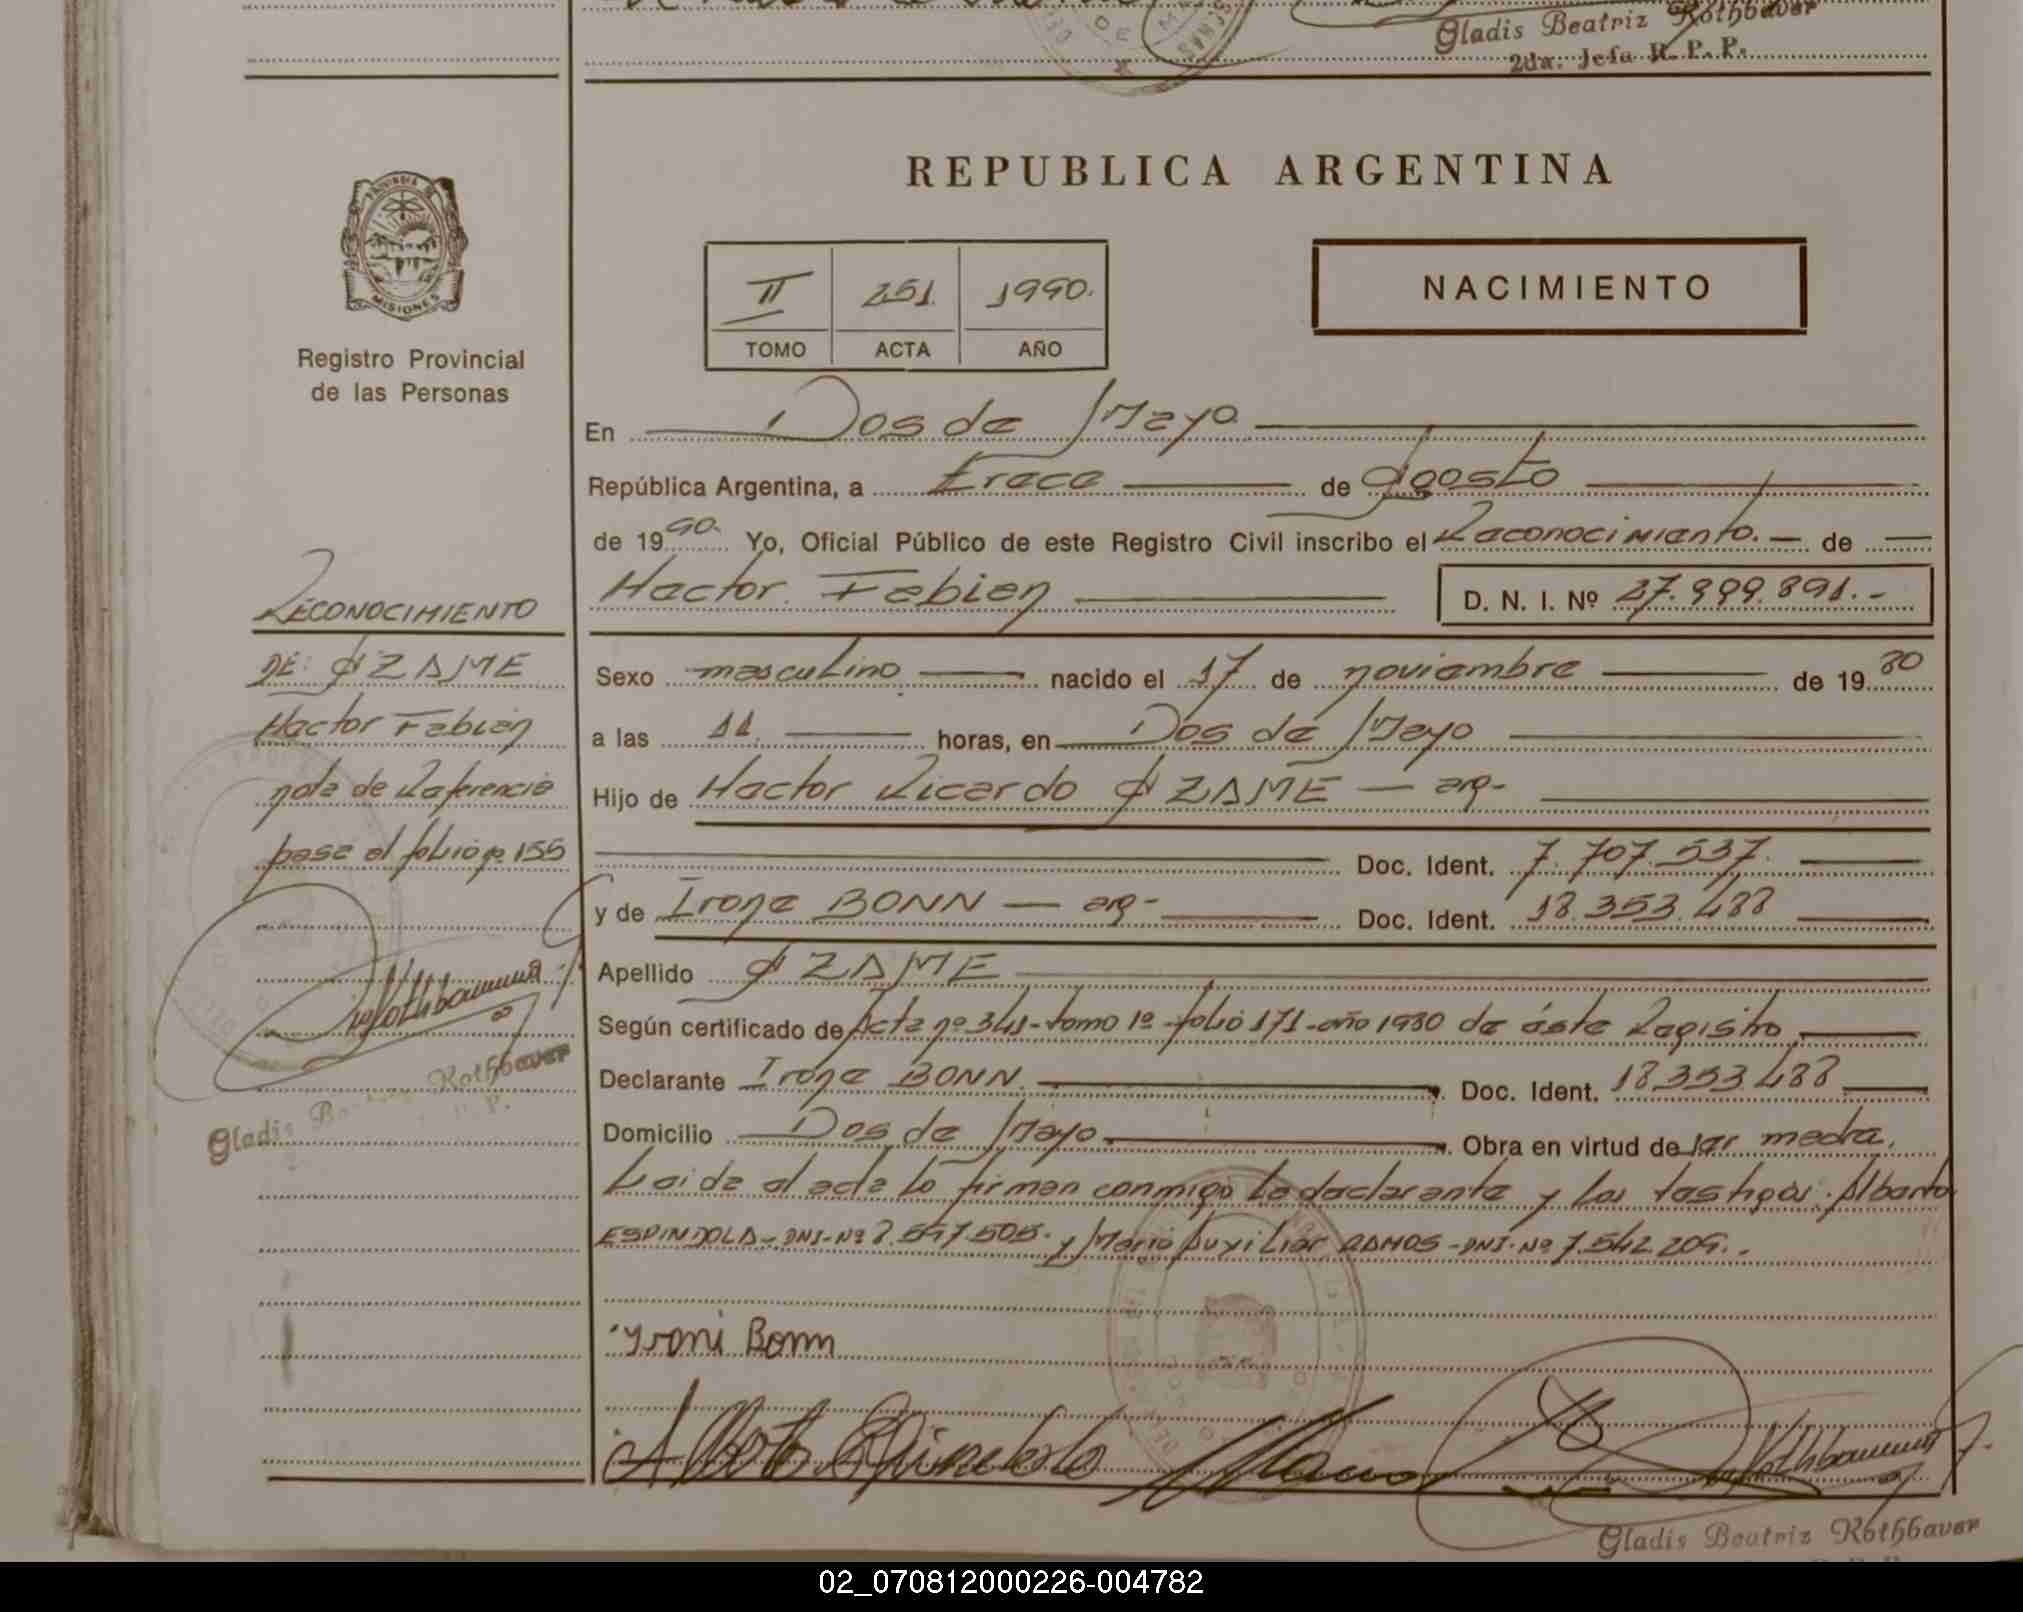 Gladis Beatriz Rothbaver
2da. Jefa R. P. P.
REPUBLICA ARGENTINA
PROVINCIA DE
MISIONES
Registro Provincial
de las Personas
II 251. 1990.
TOMO ACTA AÑO
NACIMIENTO
En Dos de Mayo
República Argentina, a trece de Agosto
de 1990. Yo, Oficial Público de este Registro Civil inscribo el Reconocimiento. — de
Hector Fabien D. N. I. Nº 27.999.891.-
Sexo masculino nacido el 17 de noviembre de 1980
a las 11. horas, en Dos de Mayo
Hijo de Hector Ricardo AZAME — arg-
Doc. Ident. 7.707.537.
y de Irone BONN — arg- Doc. Ident. 18.353.488
Apellido AZAME
Según certificado de Acta nº 341-tomo 1º-folio 171-año 1980 de éste Registro
Declarante Irone BONN. Doc. Ident. 18.353.488
Domicilio Dos de Mayo. Obra en virtud de ser madre.
Leida el acta lo firman conmigo la declarante y los testigos: Alberto
ESPINDOLA- DNI-Nº 7.542.209.-
RECONOCIMIENTO
DE: AZAME
Hector Fabien
nota de Referencia
pase al folio nº 155
Rothbaver
Gladis
Yvoni Bonn
Alberto Espindola
Gladis Beatriz Rothbaver
02_070812000226-004782